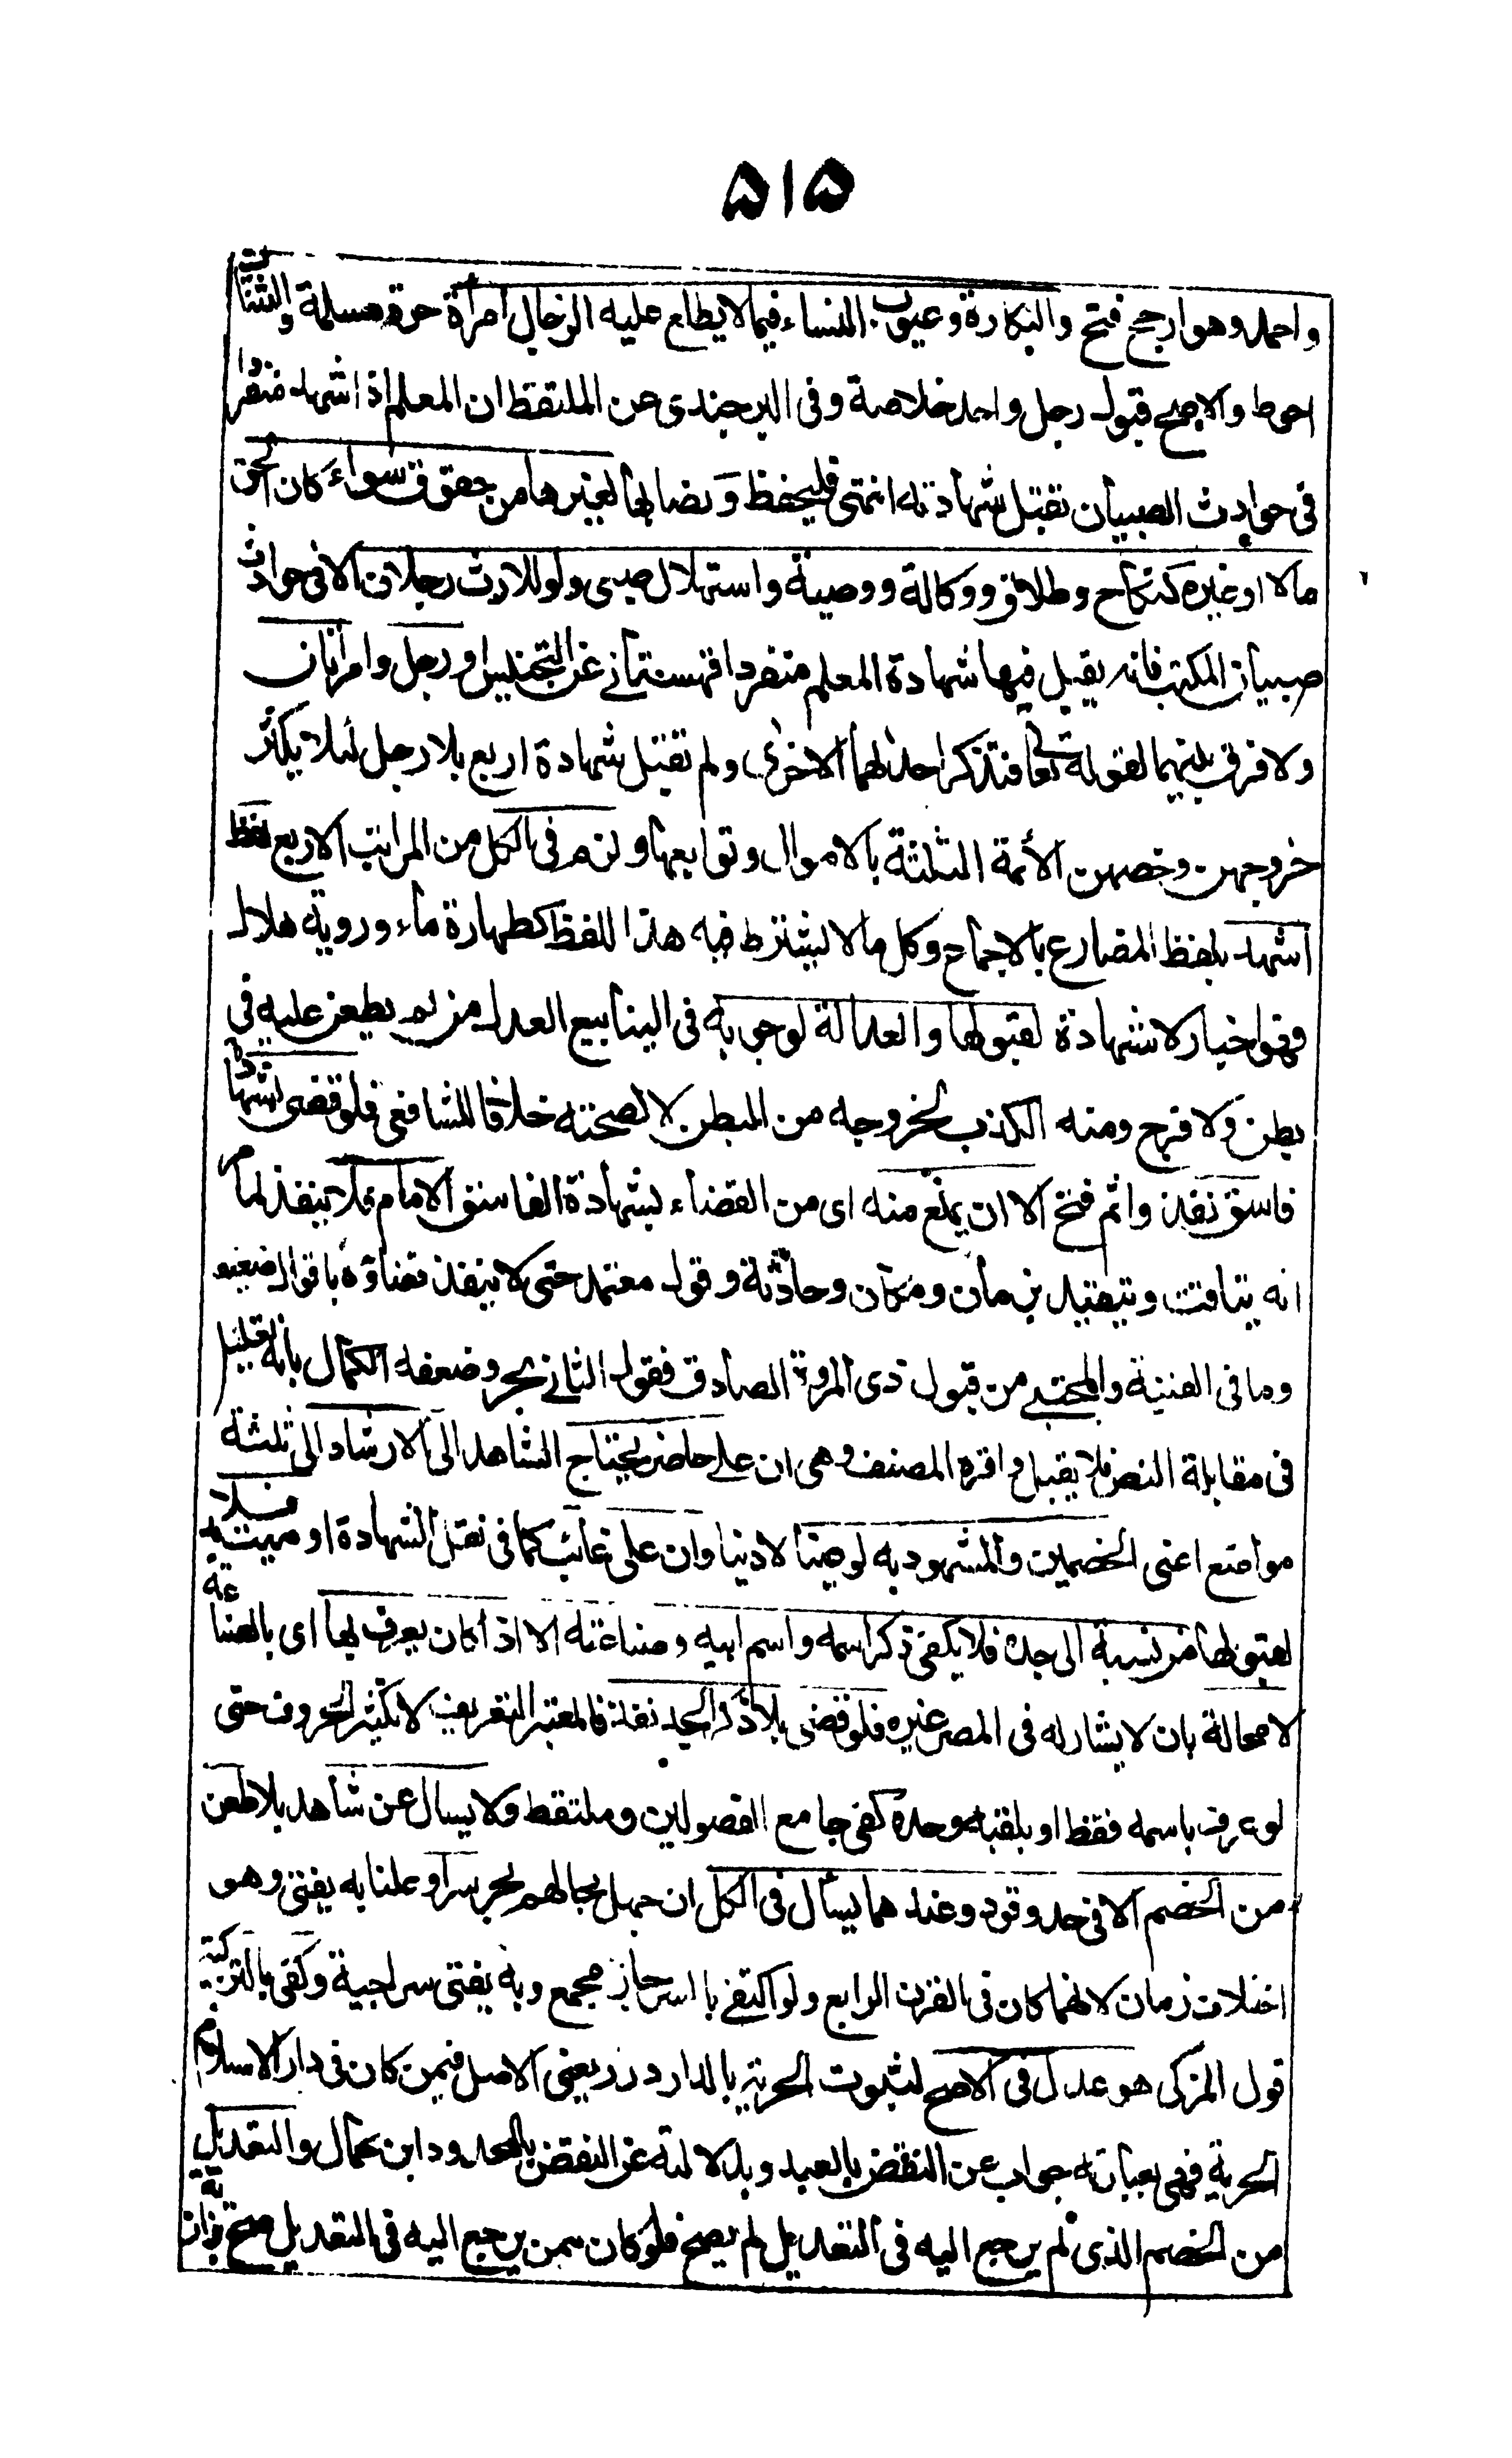 ۵۱۵
واحد وهو ارجح فتح والبكارة وعيوب النساء فيما لا يطلع عليه الرجال امرأة حرة مسلمة والثنتان
احوط والاصح قبول رجل واحد خلاصة وفى البرجندى عن الملتقط ان المعلم اذا شهد منفردا
فى حوادث الصبيان تقبل شهادته انتهى فليحفظ ونصابها لغيرها من حقوق سواء كان الحق
مالا او غيره كنكاح وطلاق ووكالة ووصية واستهلال صبى ولو للارث رجلان الا فى حوادث
صبيان المكتب فانه يقبل فيها شهادة المعلم منفردا قهستانى عن التجنيس او رجل وامرأتان
ولا فرق بينهما لقوله تعا فتذكر احداهما الاخرى ولم تقبل شهادة اربع بلا رجل لئلا يكثر
خروجهن وخصهن الأئمة الثلثة بالاموال وتوابعها ولزم فى الكل من المراتب الاربع لفظ
اشهد بلفظ المضارع بالاجماع وكل ما لا يشترط فيه هذا اللفظ كطهارة ماء ورويه هلال
فهو اخبار لا شهادة لقبولها والعدالة لوجوبه فى الينابيع العدل من لم يطعن عليه فى
بطن ولا فرج ومنه الكذب لخروجه من البطن لا لصحته خلافا للشافعى فلو قضى بشهادة
فاسق نفذ واثم فتح الا ان يمنع منه اى من القضاء بشهادة الفاسق الامام فلا ينفذ لما مر
انه يتاقت ويتقيد بزمان ومكان وحادثة وقول معتمد حتى لا ينفذ قضاؤه باقوال ضعيفه
وما فى القنية والمجتبى من قبول ذى المروة الصادق فقول الثانى بحر وضعفه الكمال بانه تعليل
فى مقابلة النص فلا يقبل واقره المصنف وهى ان على حاضر يحتاج الشاهد الى الارشاد الى ثلثة
مواضع اعنى الخصمين والمشهود به لو عينا لا دينا وان على غائب كما فى نقل الشهادة او ميت فلا بد
لقبولها من نسبة الى جده فلا يكفى ذكر اسمه واسم ابيه وصناعته الا اذا كان يعرف بها اى بالصناعة
لا محالة بان لا يشاركه فى المصر غيره فلو قضى بلا ذكر الجد نفذ فالمعتبر التعريف لا تكثير الحروف حتى
لو عرف باسمه فقط او بلقبه وحده كفى جامع الفصولين وملتقط ولا يسال عن شاهد بلا طعن
من الخصم الا فى حد وقود وعندهما يسأل فى الكل ان جهل بحالهم بحر سرا وعلنا به يفتى وهو
اختلاف زمان لانهما كان فى القرن الرابع ولو اكتفى بالسر جاز مجمع وبه يفتى سراجية وكفى بالتزكية
قول المزكى هو عدل فى الاصح لثبوت الحرية بالدار درر يعنى الاصل فيمن كان فى دار الاسلام
الحرية فهى بعبارته جواب عن النقض بالعبد وبدلالته عن النقض بالمحدود ابن كمال والتعديل
من الخصم الذى لم يرجع اليه فى التعديل لم يصح فلو كان ممن يرجع اليه فى التعديل صح بزازية